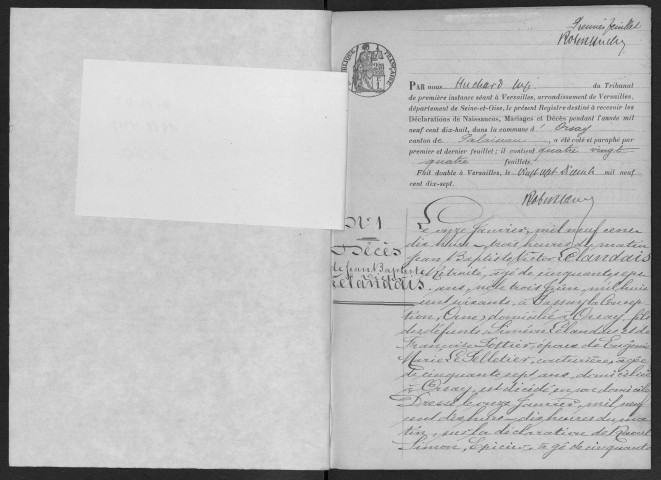 Premier feuillet
RÉPUBLIQUE FRANÇAISE
PAR nous Huchard Juge du Tribunal
de première instance séant à Versailles, arrondissement de Versailles,
département de Seine-et-Oise, le présent Registre destiné à recevoir les
Déclarations de Naissances, Mariages et Décès pendant l'année mil
neuf cent dix-huit, dans la commune d' Orsay
canton de Palaiseau, a été coté et paraphé par
premier et dernier feuillet; il contient quatre vingt
quatre feuillets.
Fait double à Versailles, le vingt sept mil neuf
cent dix-sept.
N° 1
Décès
de Jean Baptiste
Victor
Lelandais
Le onze Janvier, mil neuf cent
dix huit, trois heures du matin
Jean Baptiste Victor Lelandais
retraité, âgé de cinquante sept
ans, né le trois mil huit
cent soixante, à la Concep
tion, Orne, domicilié à Orsay, fils
des défunts, Siméon Lelandais, et de
Françoise époux de Eugénie
Marie Le Pelletier, couturière, âgée
de cinquante sept ans, domiciliée
à Orsay, est décédé en son domicile
Dressé le onze Janvier, mil neuf
cent dix huit, dix heures du ma
tin, sur la déclaration de
Simon, Epicier, âgé de cinquante